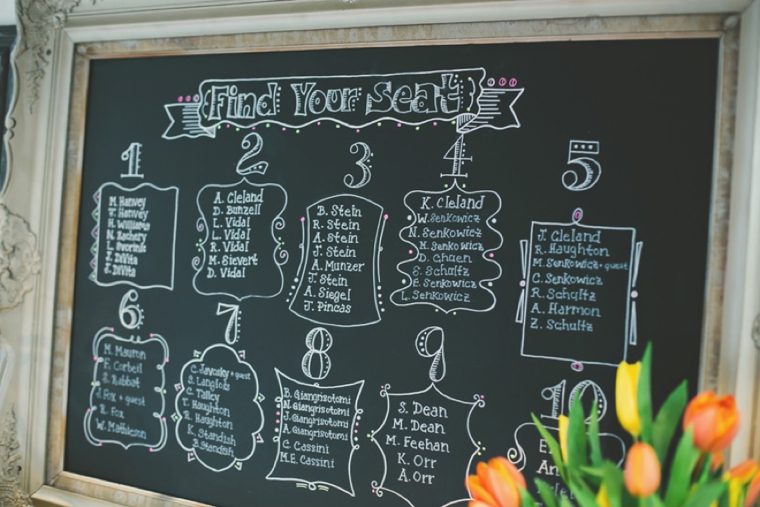 Find Your Seat
1
M. Harvey
T. Harvey
H. Williams
N. Zachery
L. Svorinis
J. DiVita
J. DiVita
2
A. Cleland
D. Bunzell
L. Vidal
L. Vidal
R. Vidal
M. Sievert
D. Vidal
3
B. Stein
R. Stein
A. Stein
J. Stein
A. Munzer
J. Stein
A. Siegel
J. Pincas
4
K. Cleland
W. Senkowicz
N. Senkowicz
H. Senkowicz
D. Chaen
S. Schultz
E. Senkowicz
L. Senkowicz
5
J. Cleland
R. Haughton
M. Sunkowicz + guest
C. Senkowicz
R. Schultz
A. Harmon
Z. Schultz
6
M. Mauron
F. Corbeil
S. Rabbat
J. Fox + guest
R. Fox
W. Mathieson
7
C. Javosky + guest
S. Langlois
C. Talley
T. Haughton
R. Haughton
K. Standish
B. Standish
8
B. Giangrisotomi
N. Giangrisotomi
J. Giangrisotomi
A. Giangrisotomi
C. Cassini
M.E. Cassini
9
S. Dean
M. Dean
M. Feehan
K. Orr
A. Orr
10